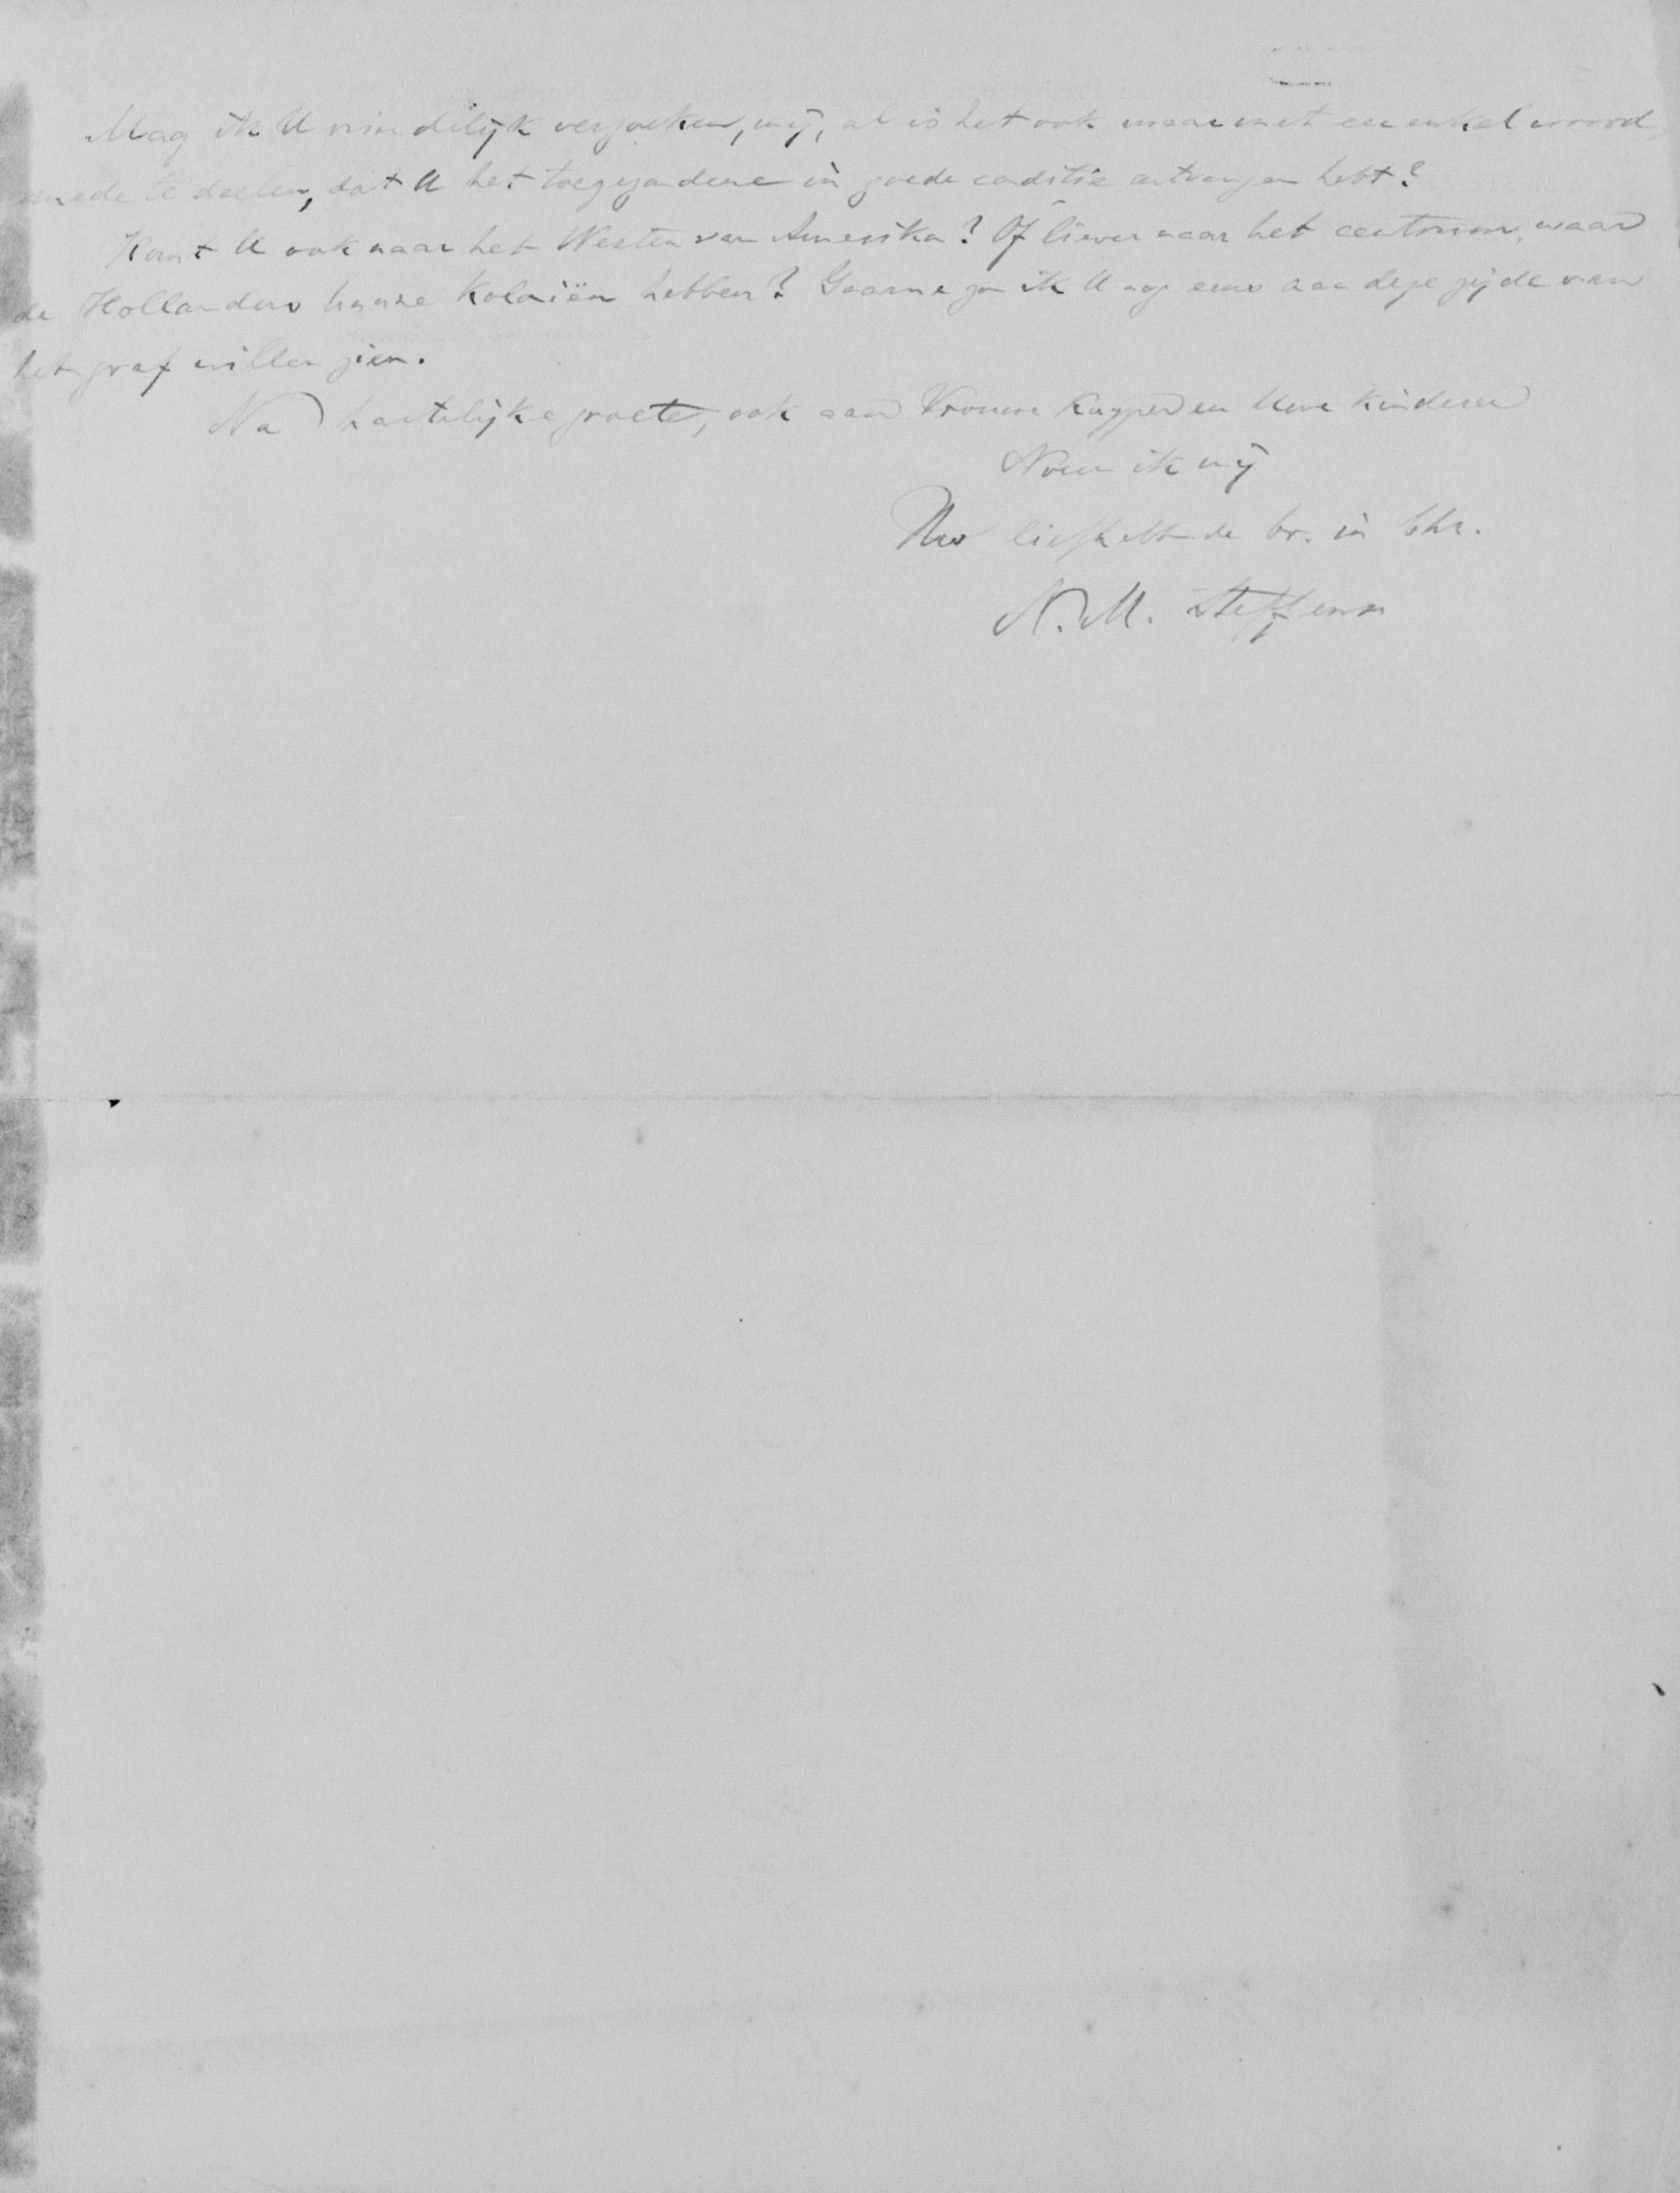 Mag ik U vriendelijk verzoeken, mij, al is het ook maar met een enkel woord
mede te deelen, dat U het toegezondene in goede conditie ontvangen hebt?
Komt U ook naar het Westen van Amerika? Of liever naar het centrum, waar
de Hollanders hunne Koloniën hebben? Gaarne zou ik U nog eens aan deze zijde van
het graf willen zien.
Na hartelijke groete, ook aan Vrouwe Kuyper en Uwe kinderen
Noem ik mij
Uw liefhebbende br. in Chr.
N. M. Steffens